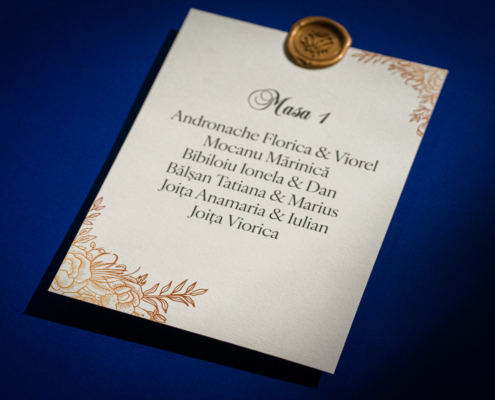 Masa 1
Andronache Florica & Viorel
Mocanu Mărinică
Bibiloiu Ionela & Dan
Bălșan Tatiana & Marius
Joița Anamaria & Iulian
Joița Viorica